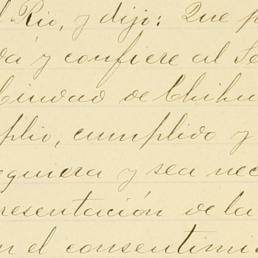 l Rio, y dijo: Que p
da y confiere al Se
Ciudad de Chihu
plio, cumplido y
equiera y sea nec
presentación de la
n el consentimi